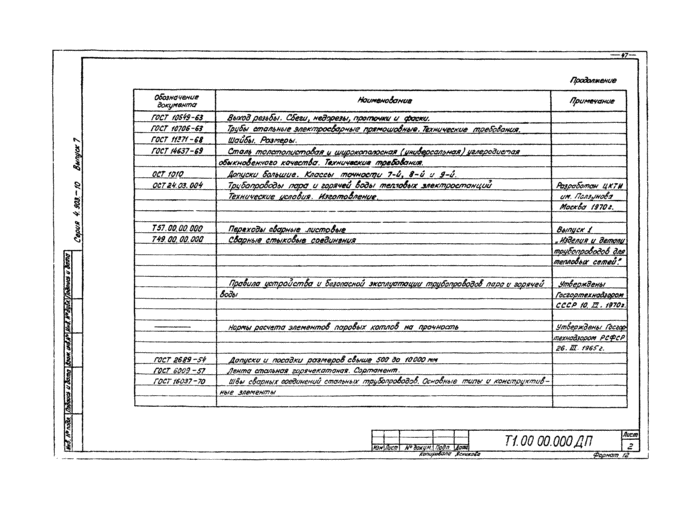 47
Продолжение
Обозначение документа
Наименование
Примечание
ГОСТ 10549-63
Выход резьбы. Сбеги, недорезы, проточки и фаски.
ГОСТ 10706-63
Трубы стальные электросварные прямошовные. Технические требования.
ГОСТ 11371-68
Шайбы. Размеры.
ГОСТ 14637-69
Сталь толстолистовая и широкополосная (универсальная) углеродистая
обыкновенного качества. Технические требования.
ОСТ 1010
Допуски большие. Классы точности 7-й, 8-й и 9-й.
ОСТ 24.03.004
Трубопроводы пара и горячей воды тепловых электростанций
Разработан ЦКТИ
Технические условия. Изготовление.
им. Ползунова
Москва 1970г.
Т57.00.00.000
Переходы сварные листовые
Выпуск 1
Т49.00.00.000
Сварные стыковые соединения
„Изделия и детали
трубопроводов для
тепловых сетей."
Правила устройства и безопасной эксплуатации трубопроводов пара и горячей
Утверждены
воды
Госгортехнадзором
СССР 10. III. 1970г.
Нормы расчета элементов паровых котлов на прочность
Утверждены Госгор-
технадзором РСФСР
26. III. 1965г.
ГОСТ 2689-54
Допуски и посадки размеров свыше 500 до 10.000 мм
ГОСТ 6009-57
Лента стальная горячекатаная. Сортамент.
ГОСТ 16037-70
Швы сварных соединений стальных трубопроводов. Основные типы и конструктив-
ные элементы
Изм Лист № докум. Подп. Дата
Т1.00 00.000 ДП
Лист
2
Копировала
Формат 12
Серия 4.903-10 Выпуск 7
Инв. № подл. Подпись и дата Взам. инв. № Инв. № дубл. Подпись и дата